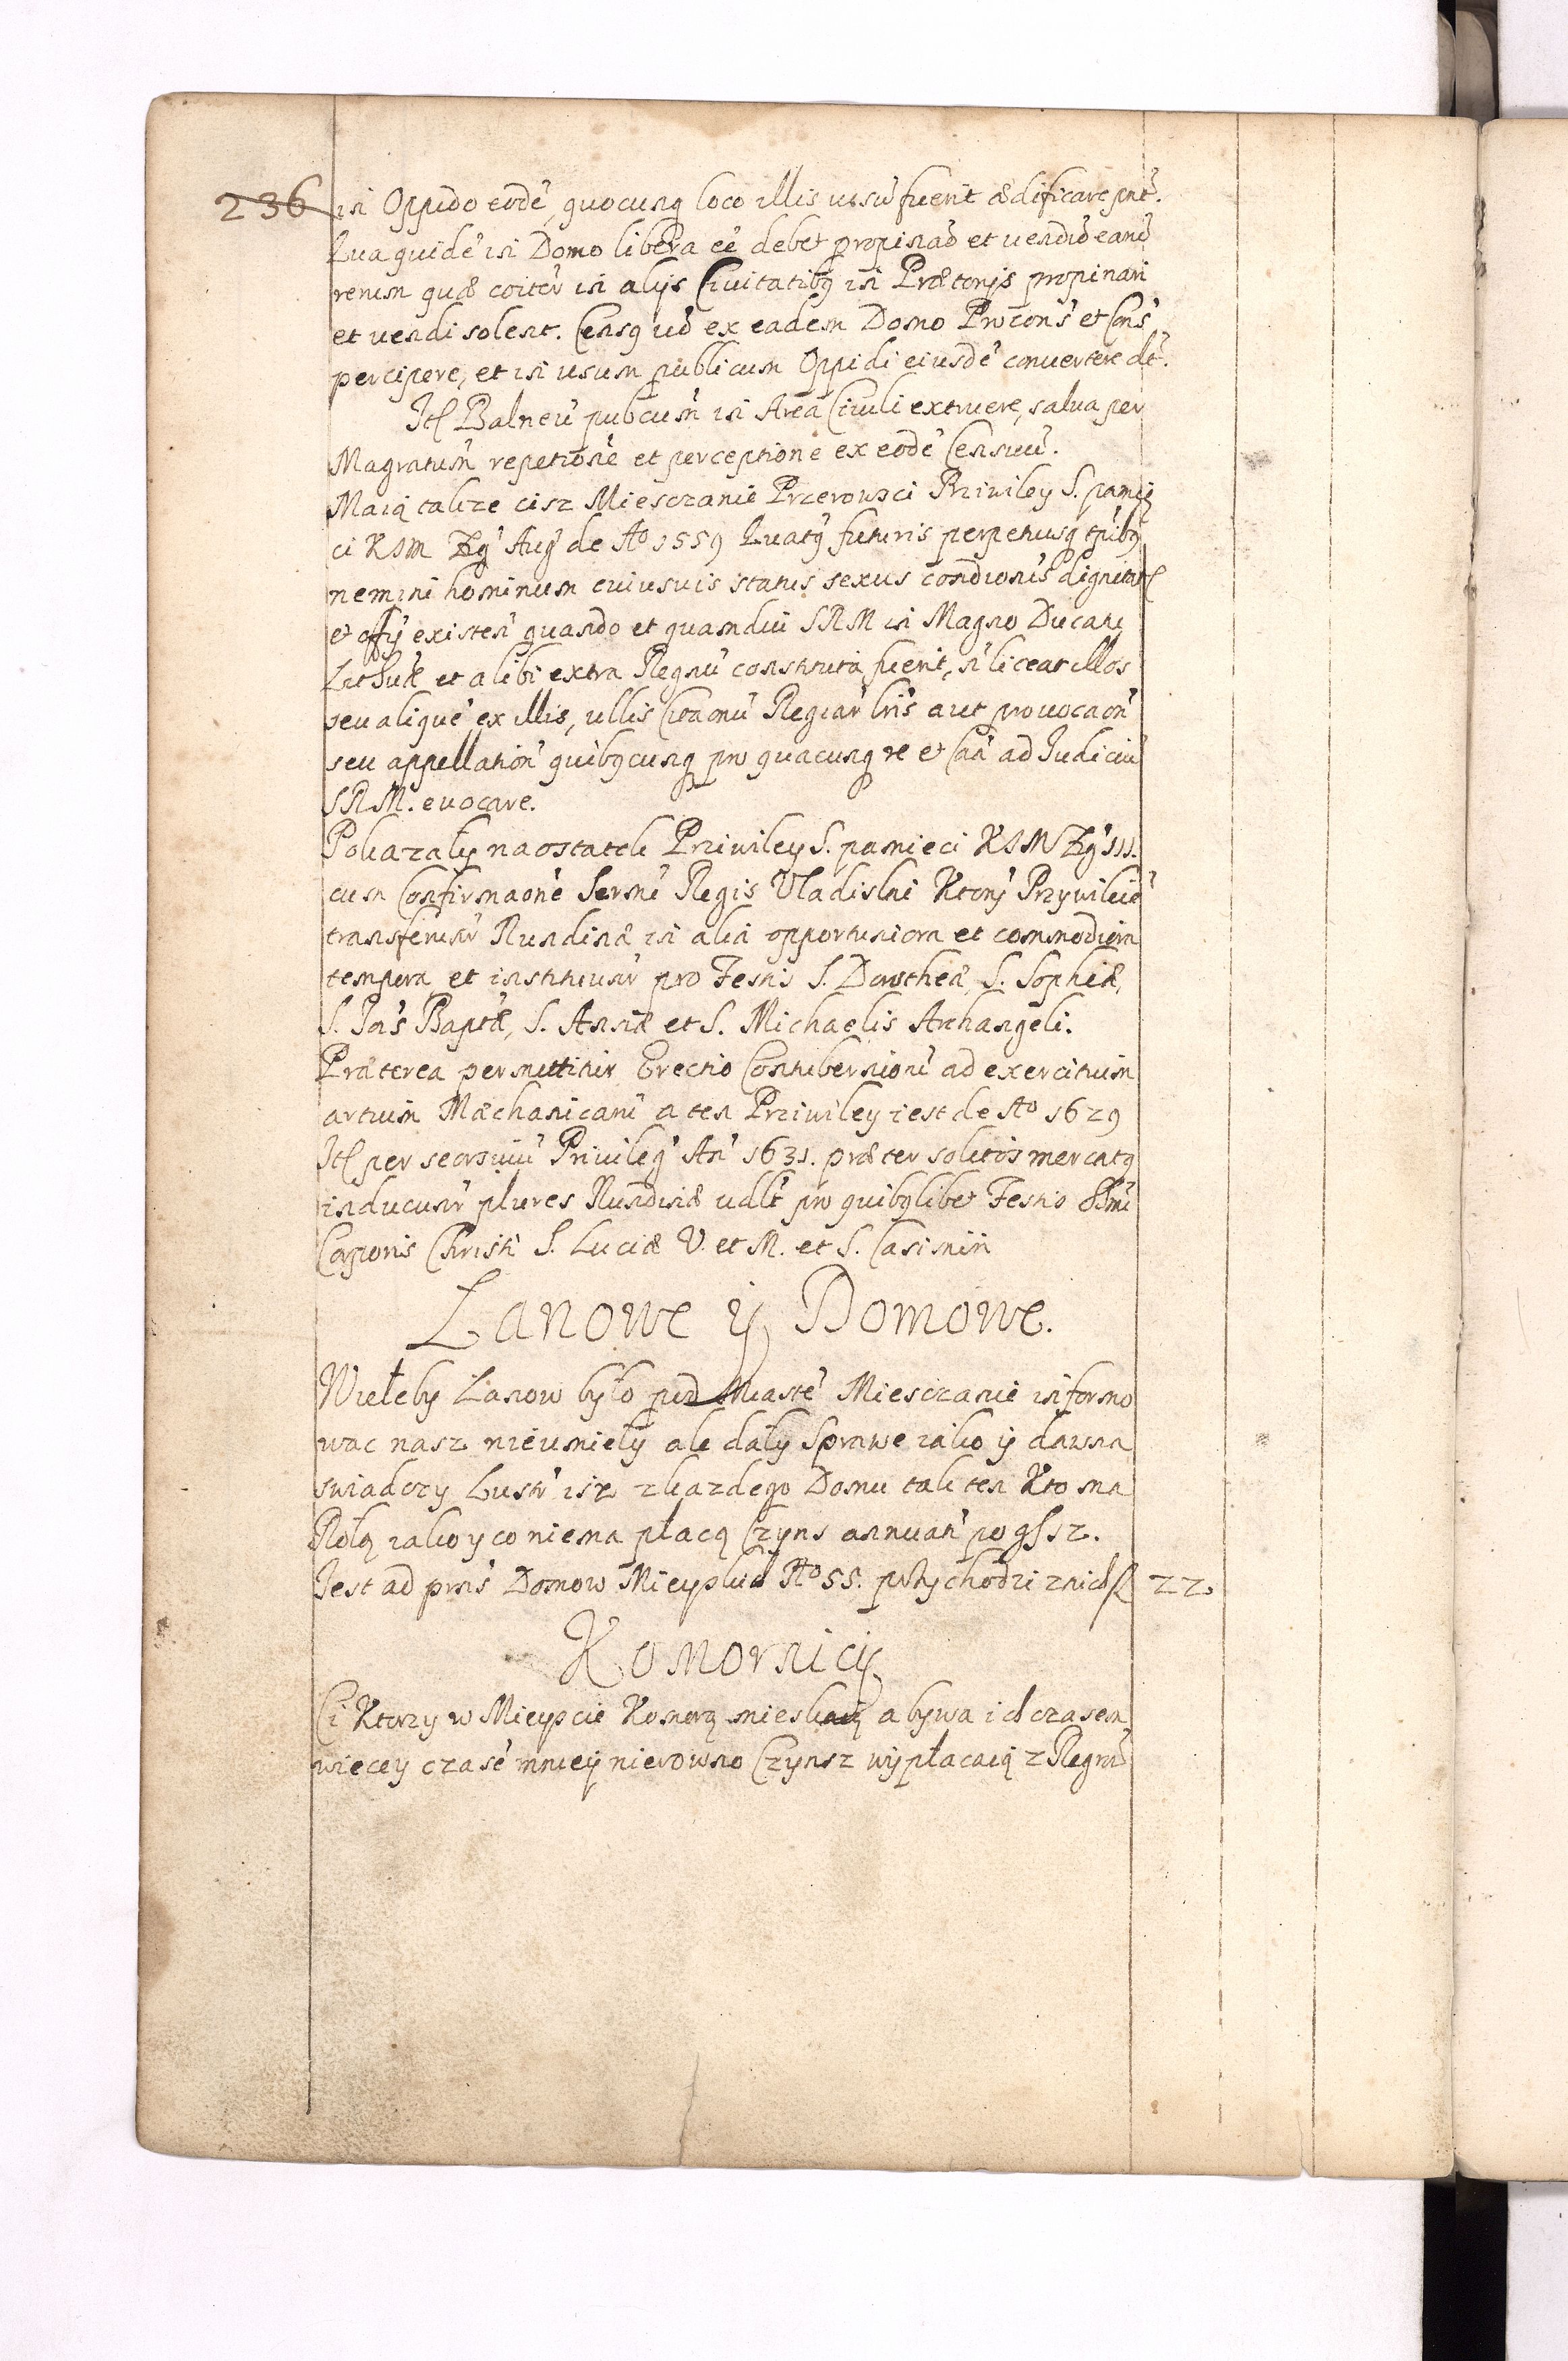 236
in Oppido eodē, quocunq loco illis uisū fuerit ædificare pnt̃.
Qua quidē in Domo libera eē debet propinaõ et uendiõ earũ
rerum quæ coĩter in alijs Ciuitatibꝫ in Prætorijs propinari
et uendi solent. Censꝫ uõ ex eadem Domo Procons̃ et Cons̃
percipere, et in usum publicum Oppidi eiusdē conuertere dt̃.
Itꝭ Balneũ pubcum̃ in Area Ciuili extruere, salua per
Magratum̃ repetione et perceptione ex eodē Censuũ.
Maią takze cisz Miesczanie Przerowsci Priwiley S. pamię
ci KJM Zyg̃ Aug̃ de Aº 1559 Quatꝫ futuris perpetuisq tp̃ibꝫ
nemini hominum cuiusuis status sexus condionis̃ dignitatꝭ
et offij existeñ quando et quamdiu SRM in Magno Ducatu
Lithuæ et alibi extra Regnũ constituta fuerit, ñ liceat illos
seu aliquē ex illis, ullis Citaonũ Regiar̃ lr̃is aut prouocaoñ
seu appellatioñ quibꝫcunq pro quacunq re et Caã ad Iudiciũ
SRM. euocare.
Pokazały na ostatek Priwiley S. pamieci KJM Zyg̃ III.
cum Confirmaonē Sermi Regis Vladislai Ktorỹ Przywileiē
transferunr̃ Nundinæ in alia opportuniora et commodiora
tempora et instituunr̃ pro Festis S. Dorotheæ, S. Sophiæ,
S. Joĩs Baptæ, S. Annæ et S. Michaelis Archangeli.
Præterea permittitur Erectio Contubernionũ ad exercitium
artium Mæchanicarũ a ten Priwiley iest de Aº 1629
Itꝭ per seorsiuũ Privileg̃ An̄ 1631. præter solitos mercatꝫ
inducunr̃ plures Nundinæ udlt̃ pro quibꝫlibet Festis SSmi
Corporis Christi S. Luciæ V. et M. et S. Casimiri
Lanowe ÿ Domowe.
Wieleby Lanow było pod Miastē Miesczanie informo
wac nasz nieumiely ale daly Sprawe iako ÿ dawna
swiadczy Lustr̃ isz zkazdego Domu tak ten Kto ma
Rolą iako y co niema płacą Czyns annuat̃ po g̃ sz.
Iest ad pñs Domow Mieyskich Nº 55. przychodzi znich f 22.
Komornicÿ
Ci Ktorzy w Mieyscie Komorą mieskaią a bywa ich czasem
wiecey czasē mniey nierowno Czynsz wypłacaią z Regrũ